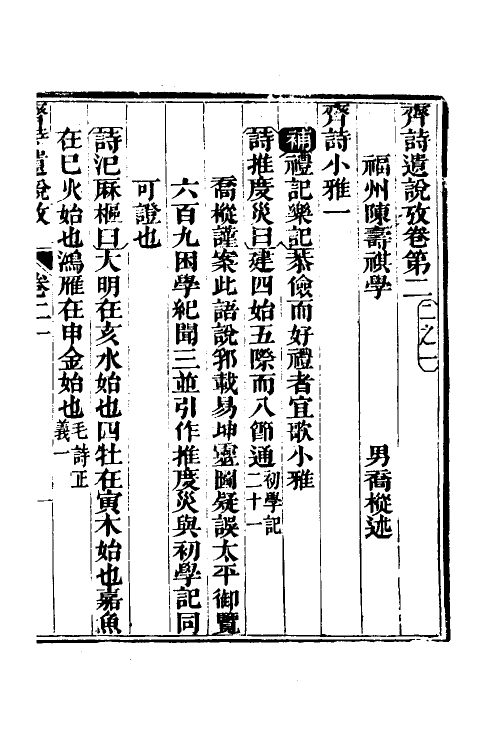 齊詩遺說攷卷第二 二之一
福州陳壽祺學 男喬樅述
齊詩小雅一
補禮記樂記恭儉而好禮者宜歌小雅
詩推度災曰建四始五際而八節通初學記二十一
喬樅謹案此語說郛載易坤靈圖疑誤太平御覽
六百九困學紀聞三並引作推度災與初學記同
可證也
詩汜厤樞曰大明在亥水始也四牡在寅木始也嘉魚
在巳火始也鴻雁在申金始也毛詩正義一
齊詩遺說攷 卷二 一